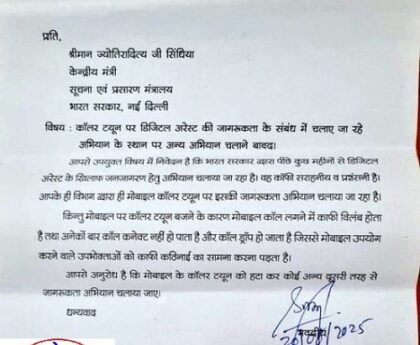 प्रति,
श्रीमान ज्योतिरादित्य जी सिंधिया
केन्द्रीय मंत्री
सूचना एवं प्रसारण मंत्रालय
भारत सरकार, नई दिल्ली
विषय : कॉलर टयून पर डिजिटल अरेस्ट की जागरूकता के संबंध में चलाए जा रहे
अभियान के स्थान पर अन्य अभियान चलाने बाबद।
आपसे उपयुक्त विषय में निवेदन है कि भारत सरकार द्वारा पीछे कुछ महीनों से डिजिटल
अरेस्ट के खिलाफ जनजागरण हेतु अभियान चलाया जा रहा। वह कॉफी सराहनीय व प्रशंसनी है।
आपके ही विभाग द्वारा ही मोबाइल कॉलर टयून पर इसकी जागरूकता अभियान चलाया जा रहा है।
किन्तु मोबाइल पर कॉलर टयून बजने के कारण मोबाइल कॉल लगने में काफी विलंब होता
है तथा अनेकों बार कॉल कनेक्ट नहीं हो पाता है और कॉल ड्रॉप हो जाता है जिससे मोबाइल उपयोग
करने वाले उपभोक्ताओं को काफी कठिनाई का सामना करना पड़ता है।
आपसे अनुरोध है कि मोबाइल के कॉलर टयून को हटा कर कोई अन्य दूसरी तरह से
जागरूकता अभियान चलाया जाए।
धन्यवाद
भवदीय
2025